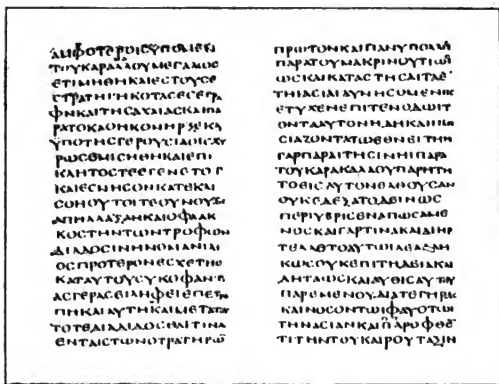 ΑΜΦΟΤΕΡΟΙΣΥΠΟΜΕΝ
ΤΟΥΚΑΡΑΛΛΟΥΜΕΓΑΛΩΣ
ΕΤΙΜΗΘΗΚΑΙΕΣΤΟΥΣΕ
ΣΤΡΑΤΗΓΗΚΟΤΑΣΕΣΕΓΡΑ
ΦΗΚΑΙΤΗΣΑΧΑΙΑΣΚΑΙΠΑ
ΡΑΤΟΚΑΘΗΚΟΝΗΡΞΕΚΑ
ΥΠΟΤΗΣΓΕΡΟΥΣΙΑΣΙΣΧΥ
ΡΩΣΕΜΙΣΗΘΗΚΑΙΕΠΙ
ΚΛΗΤΟΣΤΕΕΓΕΝΕΤΟΓ
ΚΑΙΕΣΝΗΣΟΝΚΑΤΕΚΛΙ
ΣΘΗΟΥΤΟΙΤΕΟΥΝΟΥΤΩ
ΑΠΗΛΛΑΞΑΝΚΑΙΟΦΛΑΚ
ΚΟΣΤΗΝΤΩΝΤΡΟΦΩΝ
ΔΙΑΔΟΣΙΝΗΝΟΜΑΝΙΛΙ
ΟΣΠΡΟΤΕΡΟΝΕΣΧΕΤΗΣ
ΚΑΤΑΥΤΟΥΣΥΚΟΦΑΝΤΙ
ΑΣΓΕΡΑΣΕΙΛΗΦΕΙΕΠΕΤΡΑ
ΠΗΚΑΙΑΥΤΗΚΑΙΜΕΤΑΤΑΥ
ΤΟΤΕΔΙΑΔΙΔΟΣΘΑΙΤΙΝΑ
ΕΝΤΑΙΣΤΩΝΣΤΡΑΤΗΓΩ
ΠΡΩΤΟΝΚΑΙΠΑΝΥΠΟΛΛΑ
ΠΑΡΑΤΟΥΜΑΚΡΙΝΟΥΤΙΩΝ
ΩΣΚΑΙΚΑΤΑΣΤΗΣΑΙΤΑΣ
ΤΗΙΑΣΙΑΙΑΥΛΗΣΟΜΕΝΟΣ
ΕΤΥΧΕΝΕΠΙΤΕΝΔΩΙΤ
ΟΝΤΑΑΥΤΟΝΗΔΗΚΑΙΠΛΗ
ΣΙΑΖΟΝΤΑΤΩΙΕΘΝΕΙΤΗΝ
ΓΑΡΠΑΡΑΙΤΗΣΙΝΗΙΠΑΡΑ
ΤΟΥΚΑΡΑΚΑΛΛΟΥΠΑΡΗΤΗ
ΤΟΕΙΣΑΥΤΟΝΕΛΘΟΥΣΑΝ
ΟΥΚΕΔΕΞΑΤΟΔΕΙΝΩΣ
ΠΕΡΙΥΒΡΙΣΕΝΑΠΩΣΑΜΕ
ΝΟΣΚΑΙΓΑΡΤΙΝΑΚΑΙΔΙΗΓ
ΤΕΛΛΕΤΟΑΥΤΩΙΛΕΛΑΛΗ
ΚΩΣΟΥΚΕΠΙΤΗΔΕΙΑΚΑΙ
ΔΗΤΑΩΣΚΑΙΑΥΘΙΣΑΥΤΟΥ
ΠΑΡΕΜΕΝΟΥΔΙΑΤΕΓΗΡΑΣ
ΚΑΙΝΟΣΟΝΤΩΙΦΑΥΣΤΩΙ
ΤΗΝΑΣΙΑΝΚΑΙΠΑΡΟΦΘΕΝ
ΤΙΤΗΝΤΟΥΚΑΙΡΟΥΤΑΞΙΝ